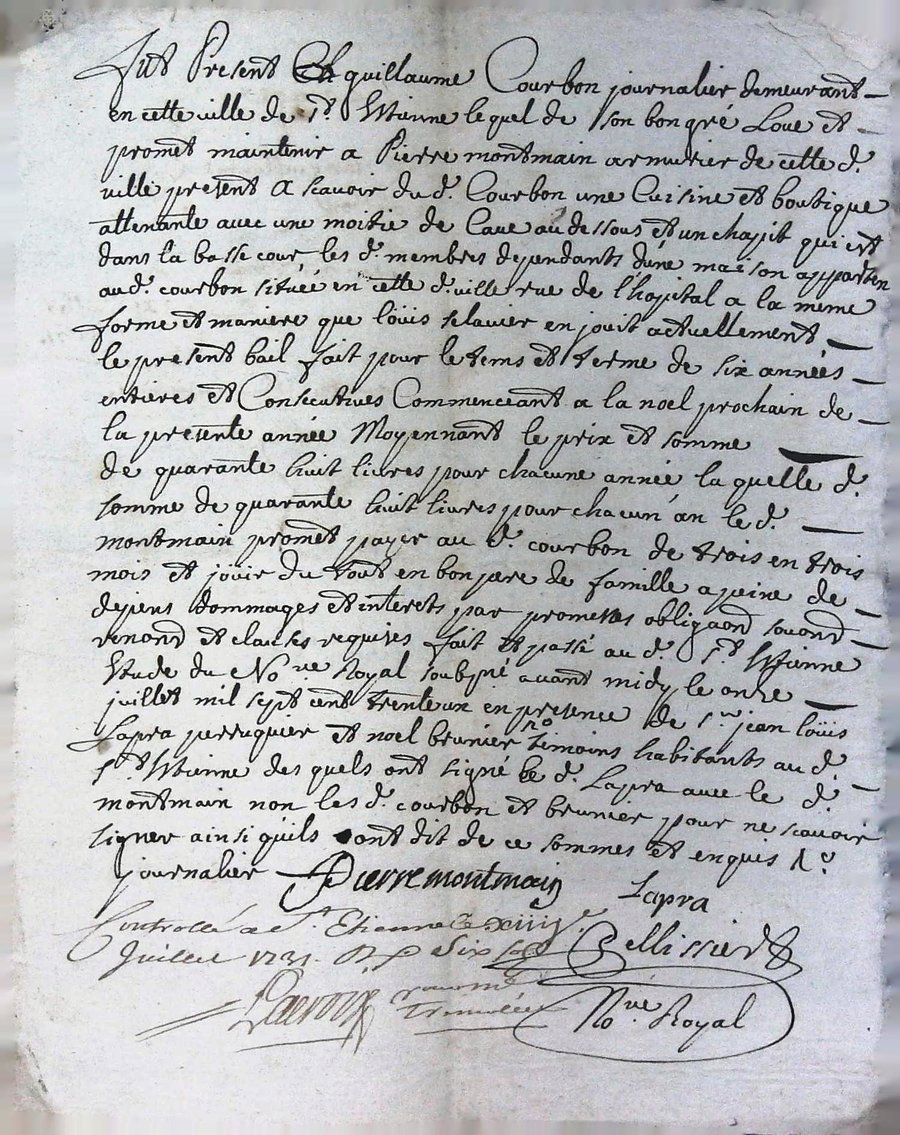 fut Present guillaume Courbon journalier demeurant
en cette ville de st. Ettienne lequel de son bon gré Loue et
promet maintenir a Pierre montmain armurier de cette d.
ville present a scavoir du d. Courbon une Cuisine et boutique
attenante avec une moitié de Cave au dessous et un chapit qui est
dans la basse cour les d. membres dependants d'une maison apparten
au d. courbon située en cette d. ville rue de l'hopital a la meme
forme et maniere que loüis en jouit actuellement
le present bail fait pour le tems et terme de six années
entieres et Consecutives Commenceant a la noel prochain de
la presente année Moyennant le prix et somme
de quarante huit livres pour chacune année la quelle d.
somme de quarante huit livres pour chacun an le d.
montmain promet payer au d. courbon de trois en trois
mois et jouir du tout en bon pere de famille a peine de
depens dommages et interets par promesses obligaond souond
renond et clauses requises fait et passé au d. st. Ettienne
Etude du No.re Royal soubgné avant midy le onze
juillet mil sept cent trente un en presence de sr. jean loüis
Lapra perruquier et noel brunier temoins habitants au d.
st. Ettienne des quels ont signé le d. Lapra avec le d.
montmain non les d. courbon et brunier pour ne scavoir
signer ainsi quils ont dit de ce sommes et enquis
journalier Pierre montmain Lapra
Controllé a St. Etienne le xiiii
Juillet 1731. R Six sols Bellissier
Lacroix
No.re Royal